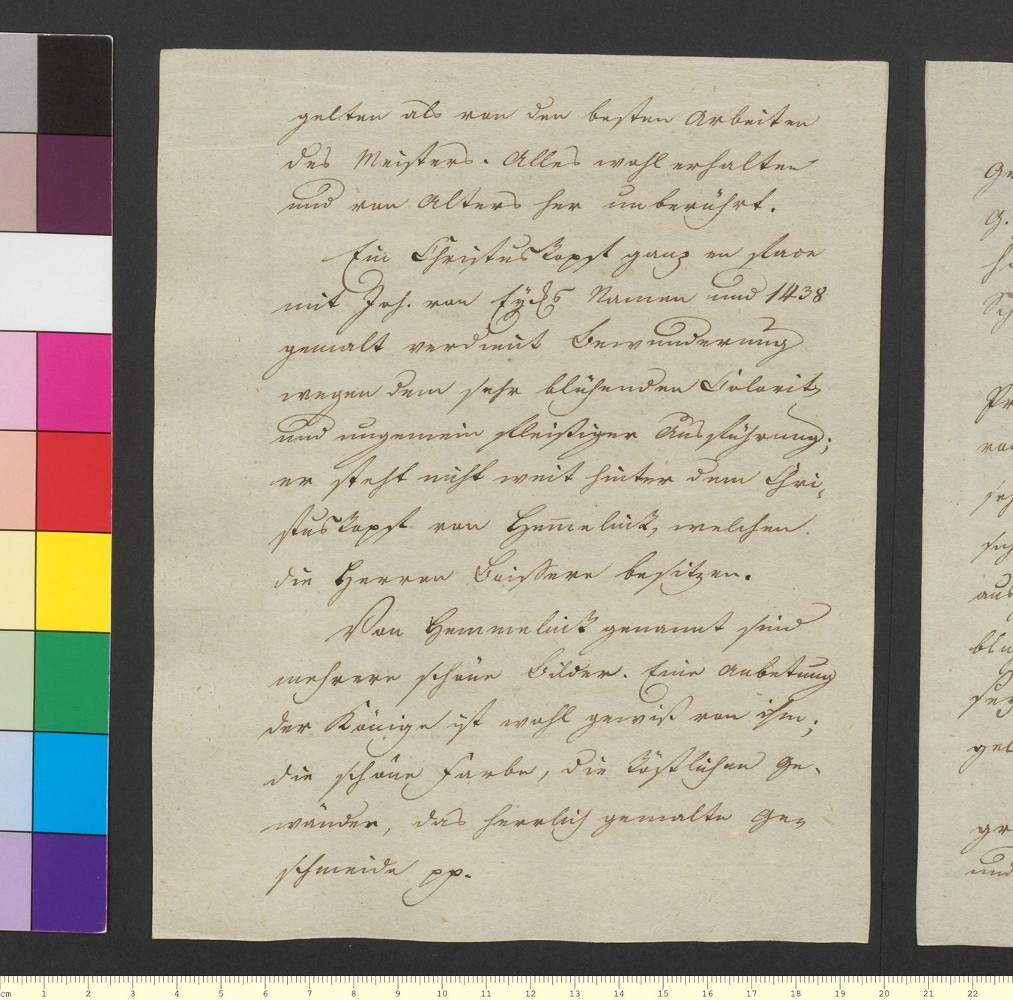 gelten als von den besten Arbeiten
des Meisters. Alles wohl erhalten
und von Alters her unberührt.
Ein Christuskopf ganz en face
mit Joh. van Eycks Namen und 1438
gemalt verdient Bewunderung
wegen dem sehr blühenden Colorit
und ungemein fleißiger Ausführung;
er steht nicht weit hinter dem Chri-
stuskopf von Hem̅elink, welchen
die Herren Boissere besitzen.
Von Hemmelink genannt sind
mehrere schöne Bilder. Eine Anbetung
der Könige ist wohl gewiß von ihm;
die schöne Farbe, die köstlichen Ge-
wänder, das herrlich gemalte Ge-
schmeide pp.